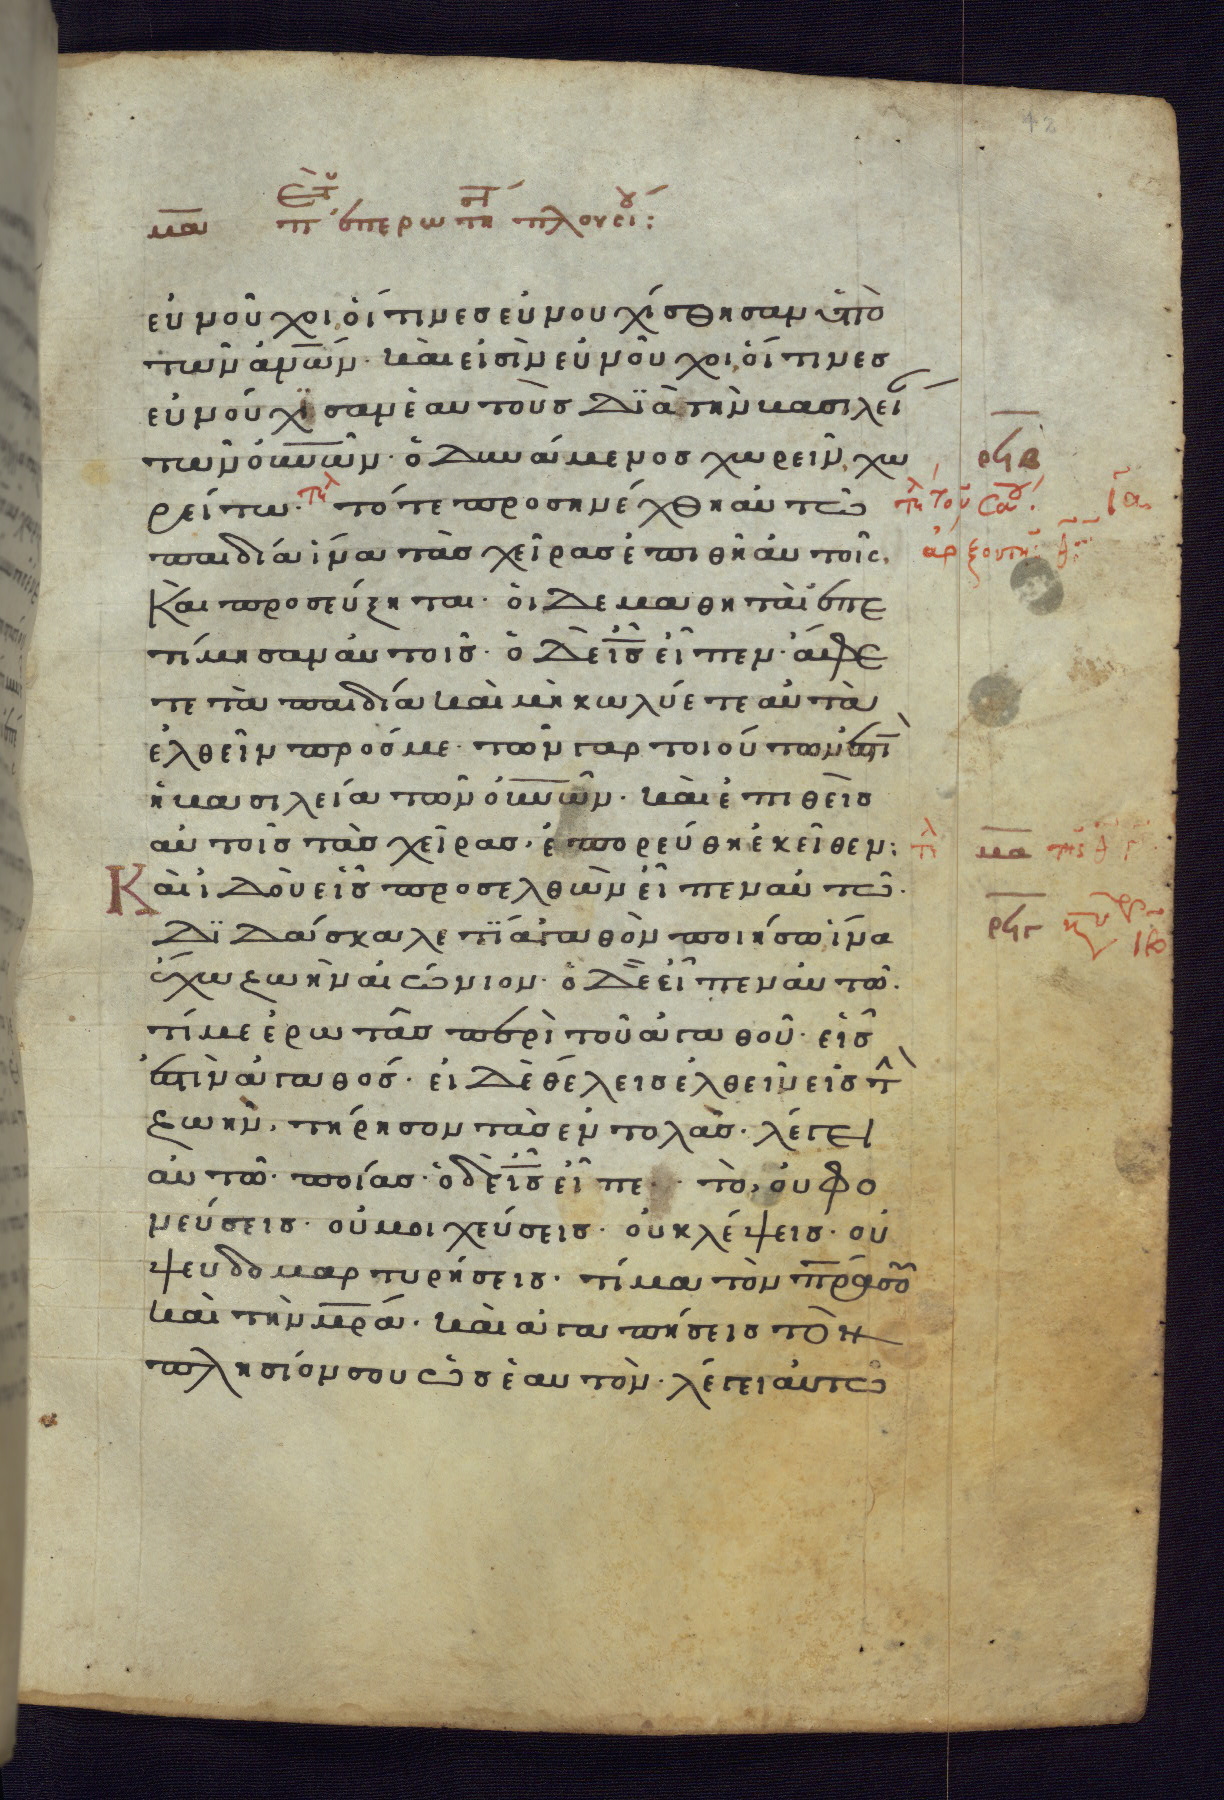 μα πε τ ἐπερωτή πλουσί:
εὐνοῦχοι, οἵτινες εὐνουχίσθησαν ὑπὸ
τῶν ἀν̅ω̅ν· καὶ εἰσὶν εὐνοῦχοι, οἵτινες
εὐνούχϊσαν ἑαυτοὺς δϊὰ τὴν βασιλεί
τῶν ο̅υ̅ν̅ω̅ν· ὁ δυνάμενος χωρεῖν, χω
ρείτω· τότε προσηνέχθη αὐτῶ
παιδία ἵνα τὰς χεῖρας ἐπιθῆ αὐτοῖς,
Καὶ προσεύξηται· οἱ δὲ μαθηταὶ ἐπε
τίμησαν αὐτοῖς· ὁ δὲ ι̅ς̅ εἶπεν· ἄφε
τε τὰ παιδία καὶ μὴ κωλύετε αὐτὰ
ἐλθεῖν πρός με· τῶν γὰρ τοιούτων ἐστὶ
ἡ βασιλεία τῶν ο̅υ̅ν̅ω̅ν· καὶ ἐπιθεὶς
αὐτοῖς τὰς χεῖρας, ἐπορεύθη ἐκεῖθεν:
Καὶ ἰδοὺ εἷς προσελθὼν εἶπεν αὐτῶ·
Δϊδάσκαλε τϊ ἀγαθὸν ποιήσω ἵνα
ἔχω ζωὴν αἰώνιον· ὁ δὲ εἶπεν αὐτῶ·
τί με ἐρωτᾶς περὶ τοῦ ἀγαθοῦ· εἷς
ἐστὶν ἀγαθός· εἰ δὲ θέλεις ἐλθεῖν εἰς τὴν
ζωὴν, τήρησον τὰς ἐντολάς· λέγει
αὐτῶ· ποίας· ὁ δὲ ι̅ς̅ εἶπε· τὸ, οὐ φο
νεύσεις· οὐ μοιχεύσεις· οὐ κλέψεις· οὐ
ψευδομαρτυρήσεις· τίμα τὸν π̅ρ̅α̅ σου
καὶ τὴν μ̅ρ̅α̅· καὶ ἀγαπήσεις τὸν
πλησίον σου ὡς ἑαυτόν· λέγει αὐτῶ